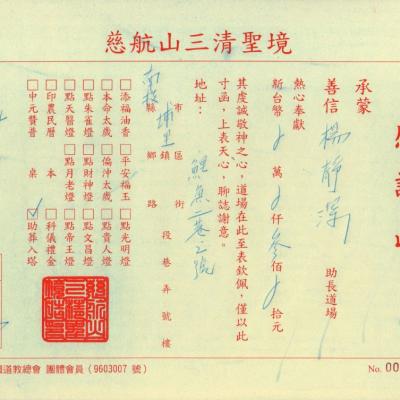 慈航山三清聖境
感謝
承蒙
善信 楊靜深 助長道場
熱心奉獻
新台幣 萬 仟 參佰 拾元
其虔誠敬神之心,道場在此至表欽佩,僅以此
寸函,上表天心,聊誌謝意。
地址:
南投 縣 市 埔里 鄉 鎮 區 鯉魚二巷2號 路 街 段 巷 弄 號 樓
□添福油香 □平安福玉 □點光明燈
□本命太歲 □偏沖太歲 □點貴人燈
□點朱雀燈 □點財神燈 □點文昌燈
□點天醫燈 □點月老燈 □點帝王燈
□印農民曆 □科儀禮金
□中元贊普 桌 ☑助葬入塔
道教總會 團體會員(9603007 號)
No. 00